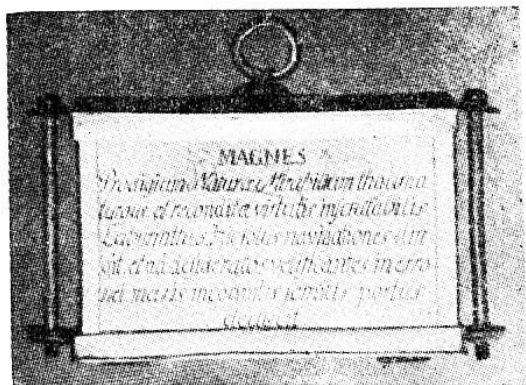 MAGNES
Prodigium Naturæ Mirabilium thauma
turgus et reconditæ virtutis inscrutabilis
Labyrinthus Hic solus navigationes
git, et ad desideratos velificantes in erro
maris incognitis semitis portus
deducit